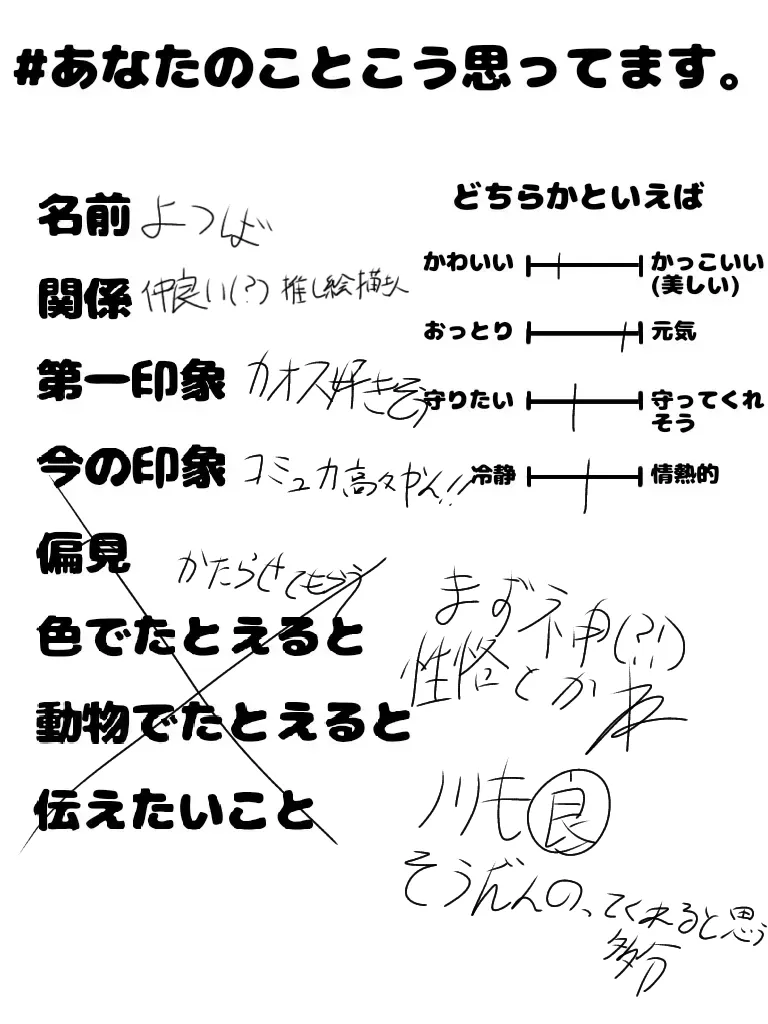 #あなたのことこう思ってます。
名前 よつば
関係 仲良い(?) 推し絵描さん
第一印象 カオス好きそう
今の印象 コミュ力高々やん!!
偏見
色でたとえると
動物でたとえると
伝えたいこと
どちらかといえば
かわいい かっこいい
(美しい)
おっとり 元気
守りたい 守ってくれ
そう
冷静 情熱的
かたらせてもらう
まず神(?!)
性格とかネ
ノリも良
そうだんのってくれると思う
多分